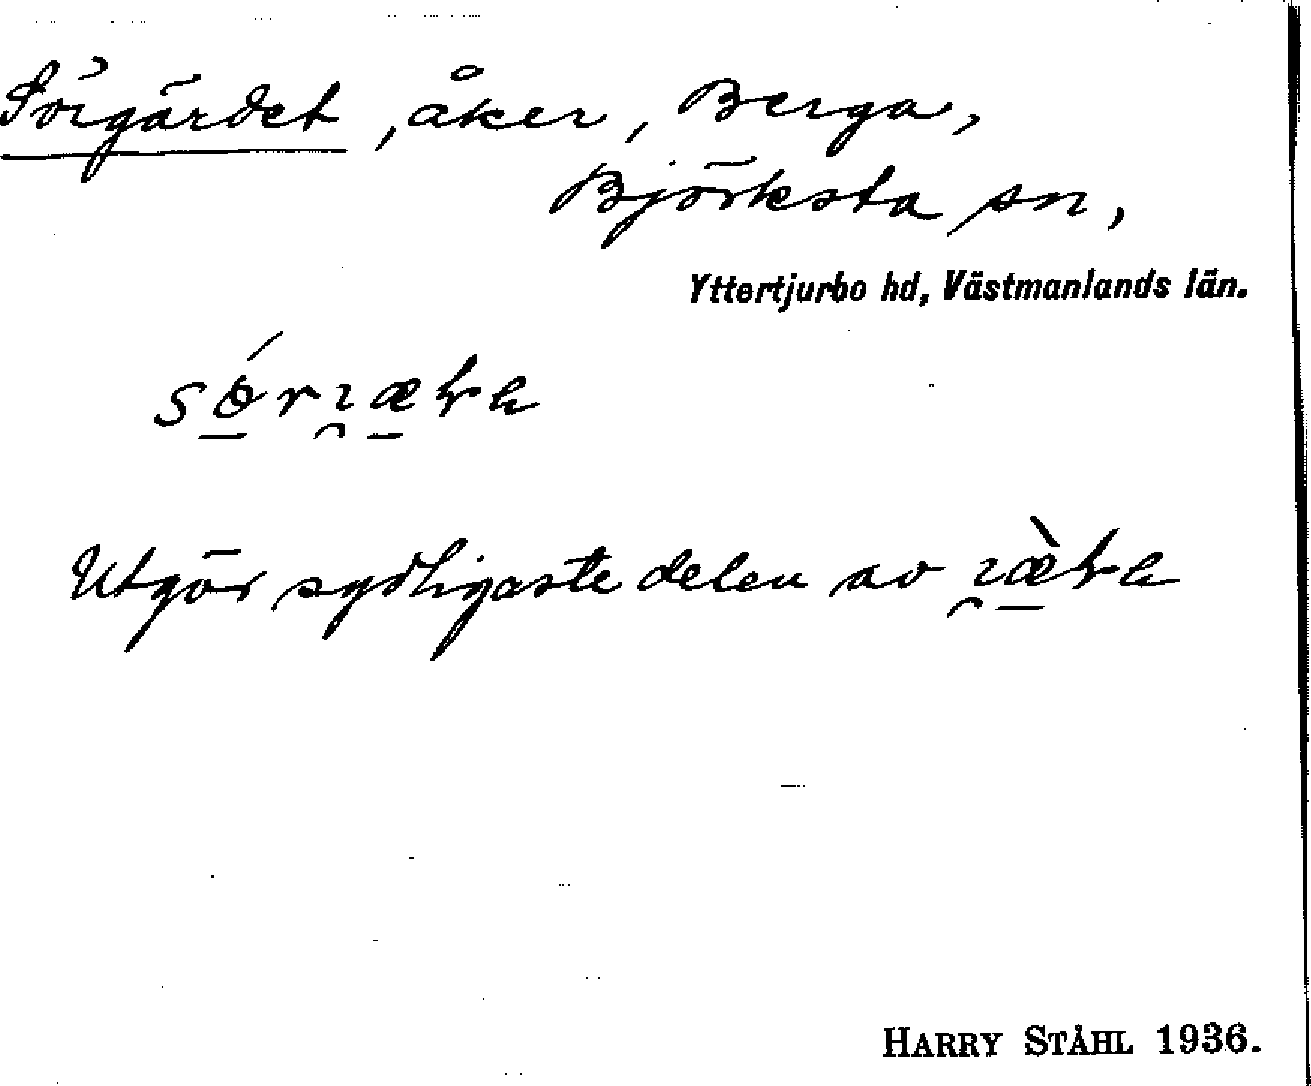 Sörgärdet, åker, Berga,
Björksta sn,
Yttertjurbo hd, Västmanlands län.
Utgör sydligaste delen av
HARRY STÅHL 1936.